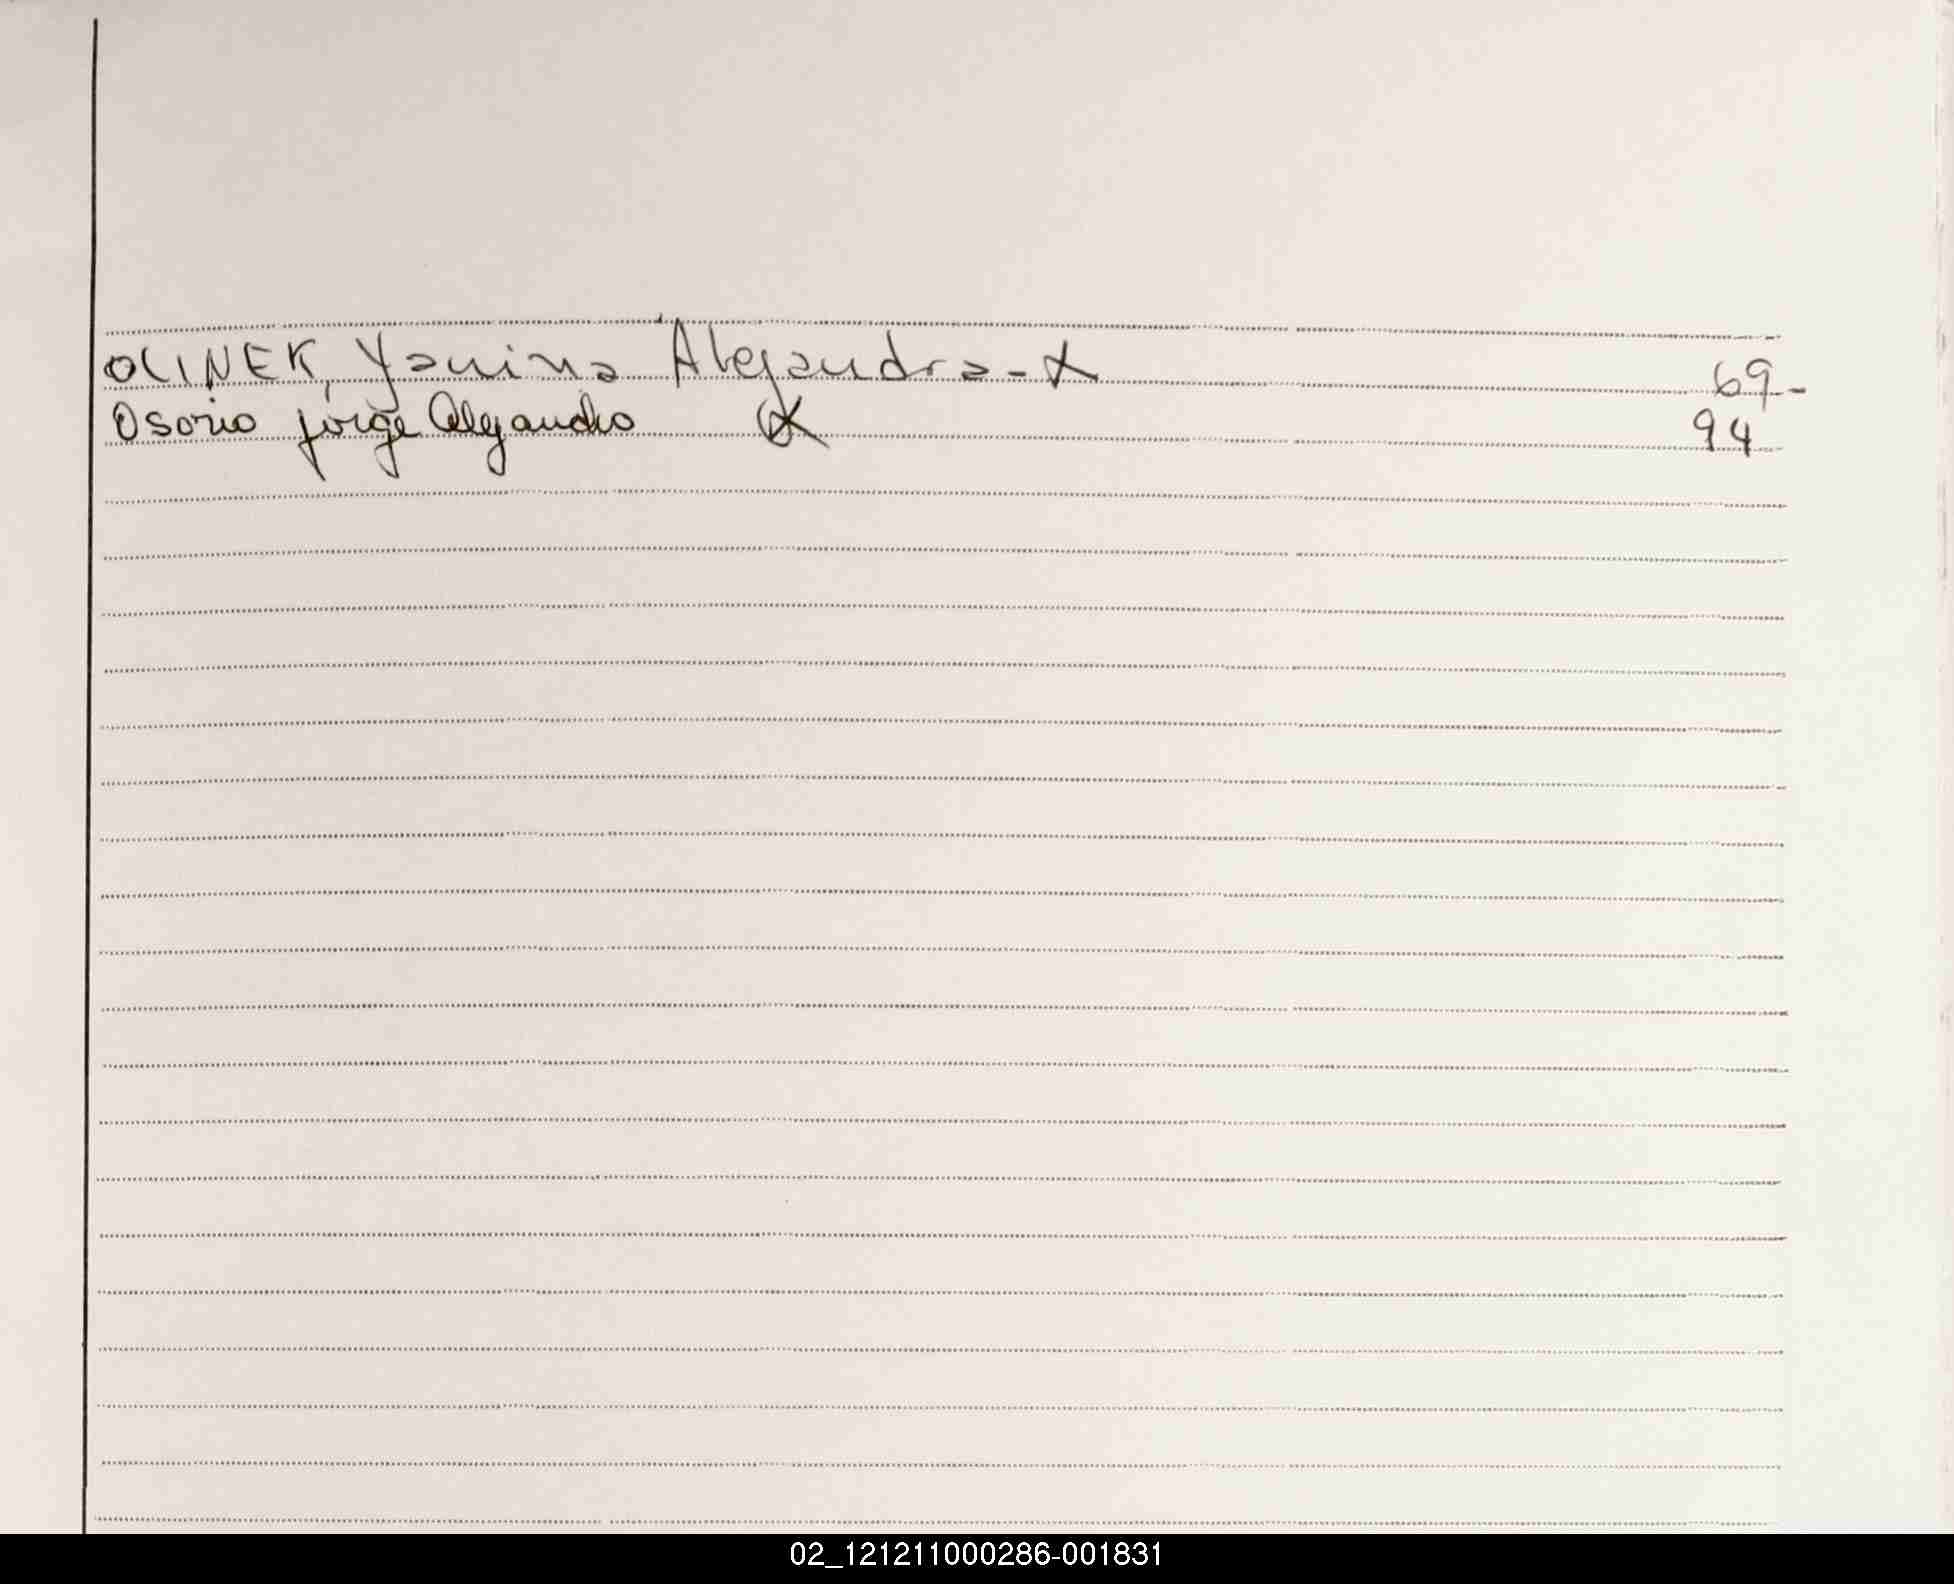 OLINEK, Yanina Alejandra - X
69-
Osorio Jorge Alejandro X
94
02_121211000286-001831